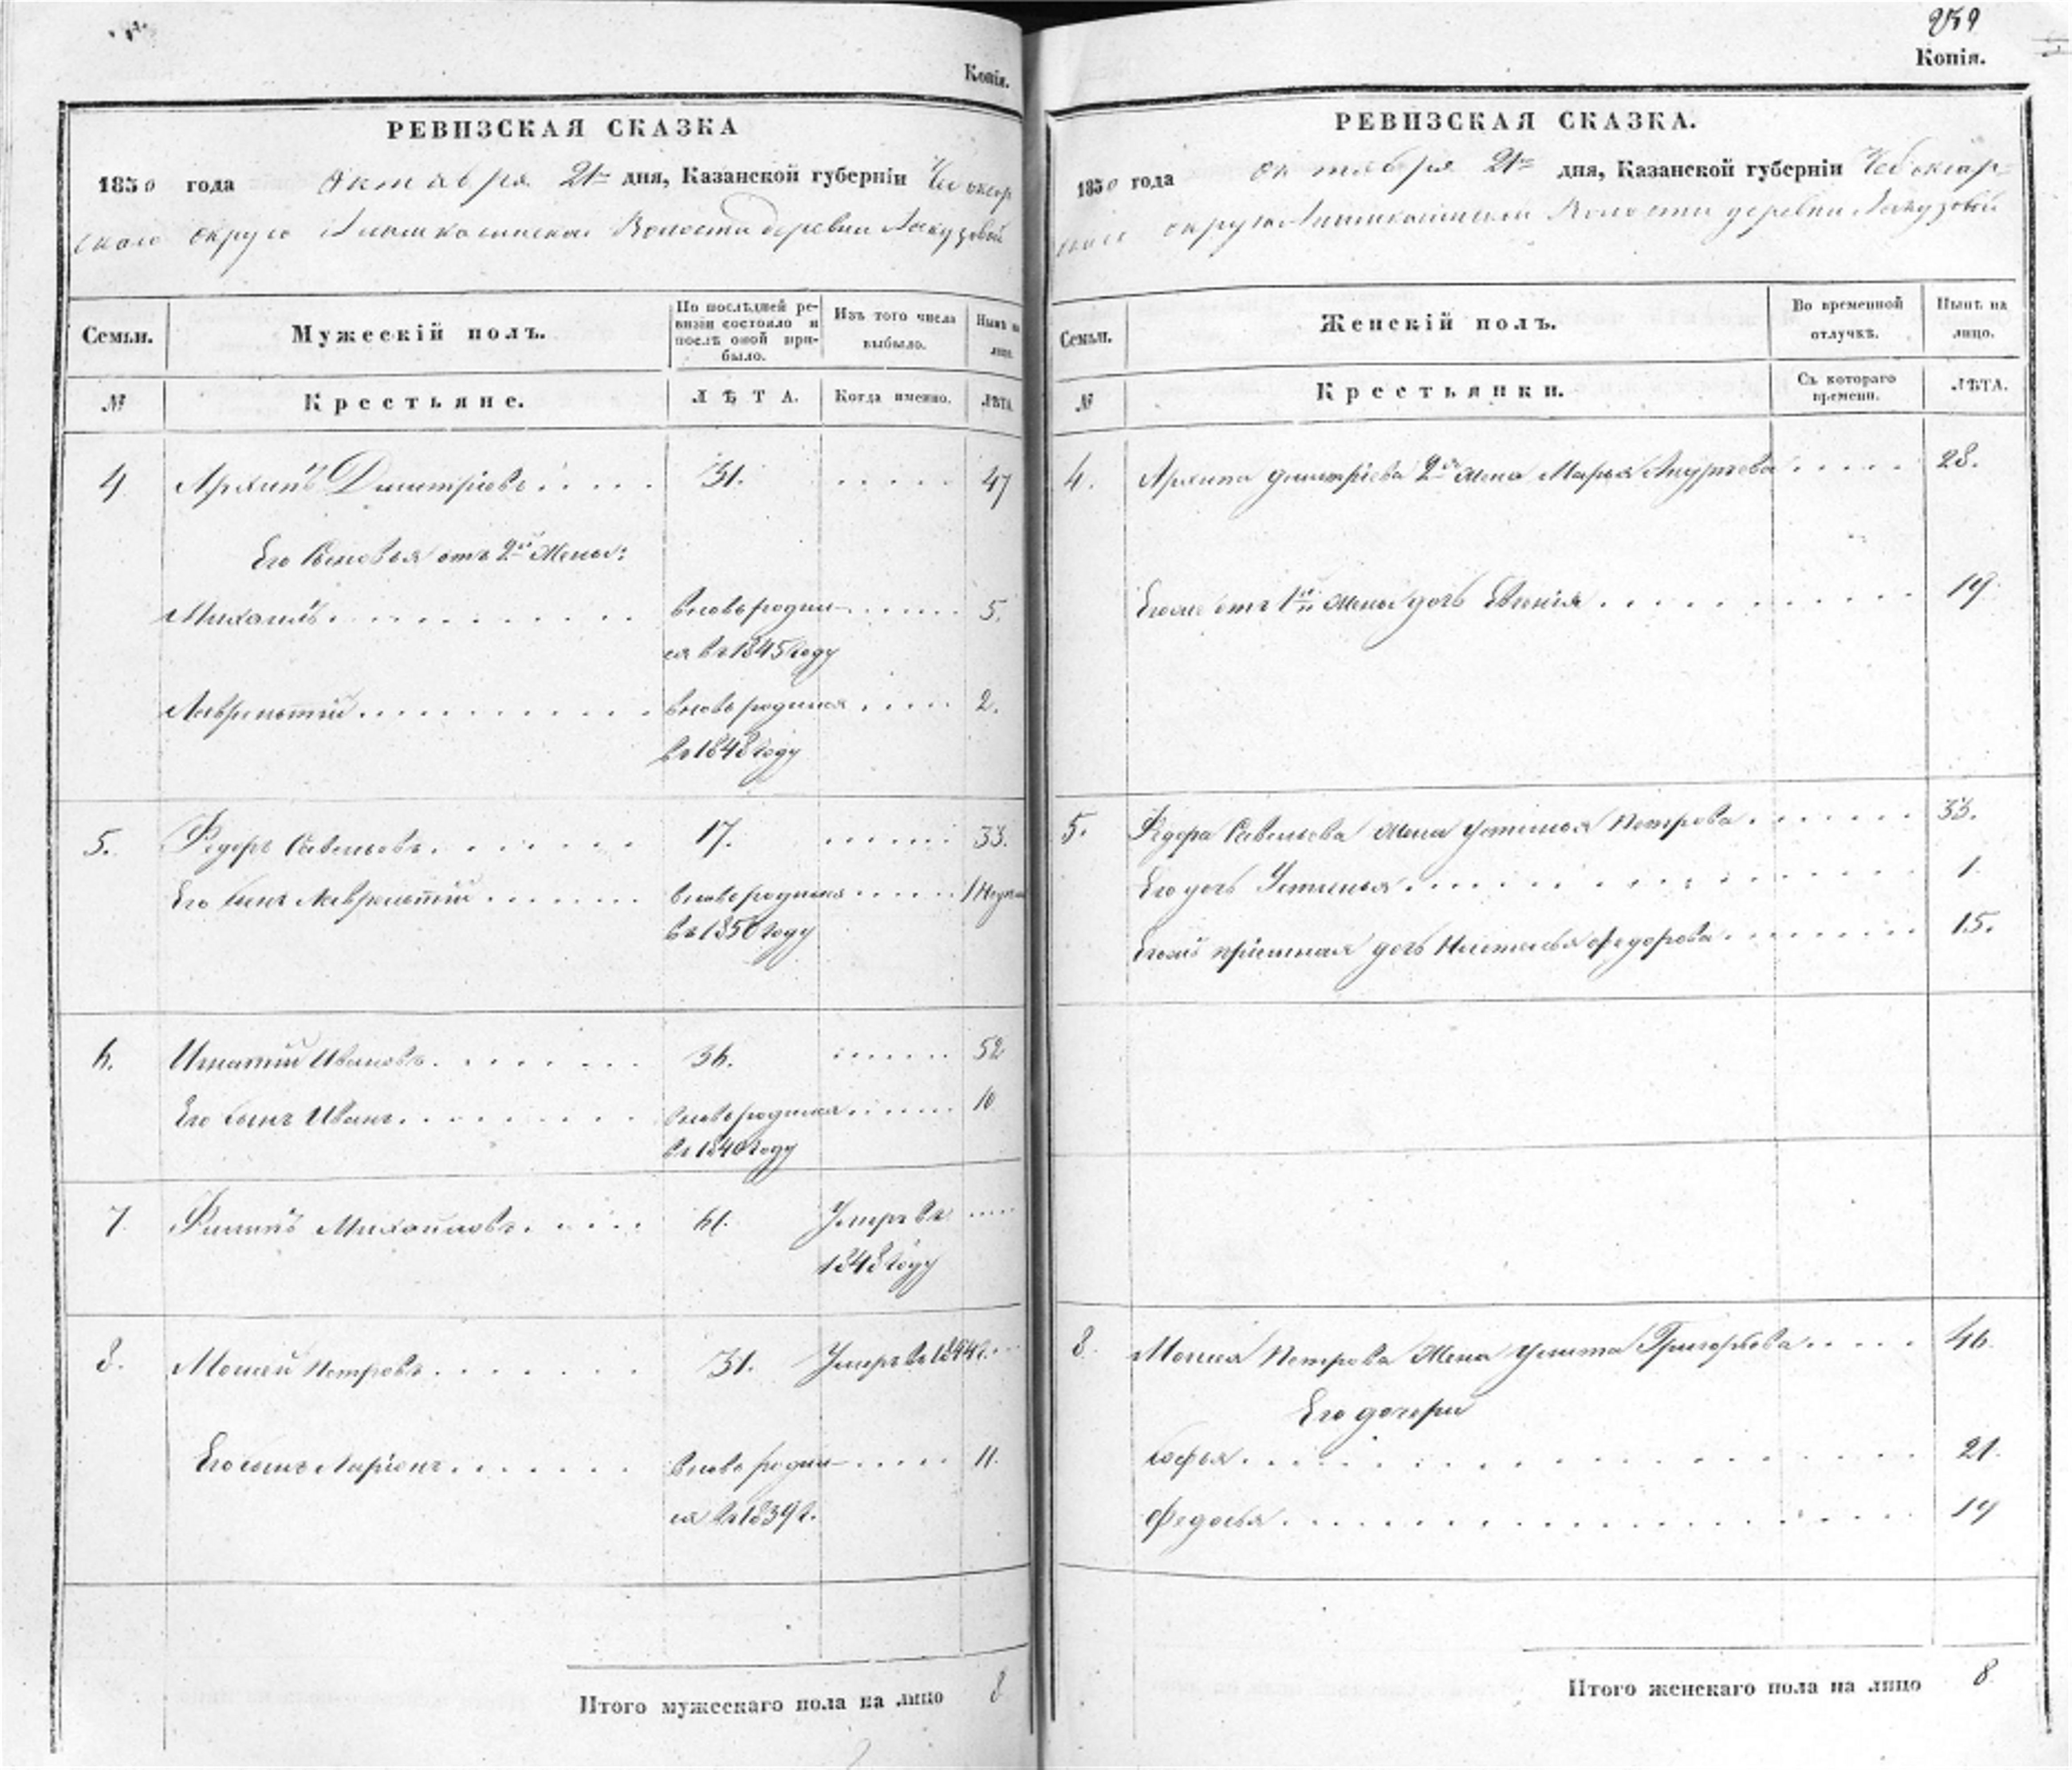 Копія.
РЕВИЗСКАЯ СКАЗКА
1850 года Октября 21го дня, Казанской губерніи Чебоксар
скаго округа Волости деревни
Семьи.
Мужескій полъ.
По послѣдней ре-
визіи состояло и
послѣ оной при-
было.
Изъ того числа
выбыло.
Нынѣ на
лицо.
№
Крестьяне.
ЛѢТА.
Когда именно.
ЛѢТА.
4 Архипъ Дмитріевъ 31. 47
Его Сыновья отъ 2й Жены:
Михаилъ вновь родил- 5.
ся въ 1845 году
Лаврентій вновь родился 2.
въ 1848 году
5. Федоръ Савельевъ 17. 33.
Его сынъ Лаврентій вновь родился 1 Неделя
въ 1850 году
6. Игнатій Ивановъ 36. 52
Его сынъ Иванъ вновь родился 10
въ 1840 году
7. Филипъ Михайловъ 61. Умеръ въ
1848 году
8. Моисей Петровъ 31. Умеръ въ 1844 г.
Его сынъ Ларіонъ вновь родил- 11.
ся въ 1839 г.
Итого мужескаго пола на лицо 8
259
Копія.
РЕВИЗСКАЯ СКАЗКА.
1850 года октября 21го дня, Казанской губерніи Чебоксар-
скаго округа Волости деревни
Семьи.
Женскій полъ.
Во временной
отлучкѣ.
Нынѣ на
лицо.
№
Крестьянки.
Съ котораго
времени.
ЛѢТА.
4. Архипа Дмитріева 2я жена Марья Андреева 28.
Его же отъ 1й жены дочь 19.
5. Федора Савельева жена Устинья Петрова 33.
Его дочь Устинья 1.
Его же пріемная дочь Настасья Федорова 15.
8. Моисея Петрова жена Улита Григорьева 46.
Его дочери
Софья 21.
Федосья 14
Итого женскаго пола на лицо 8.